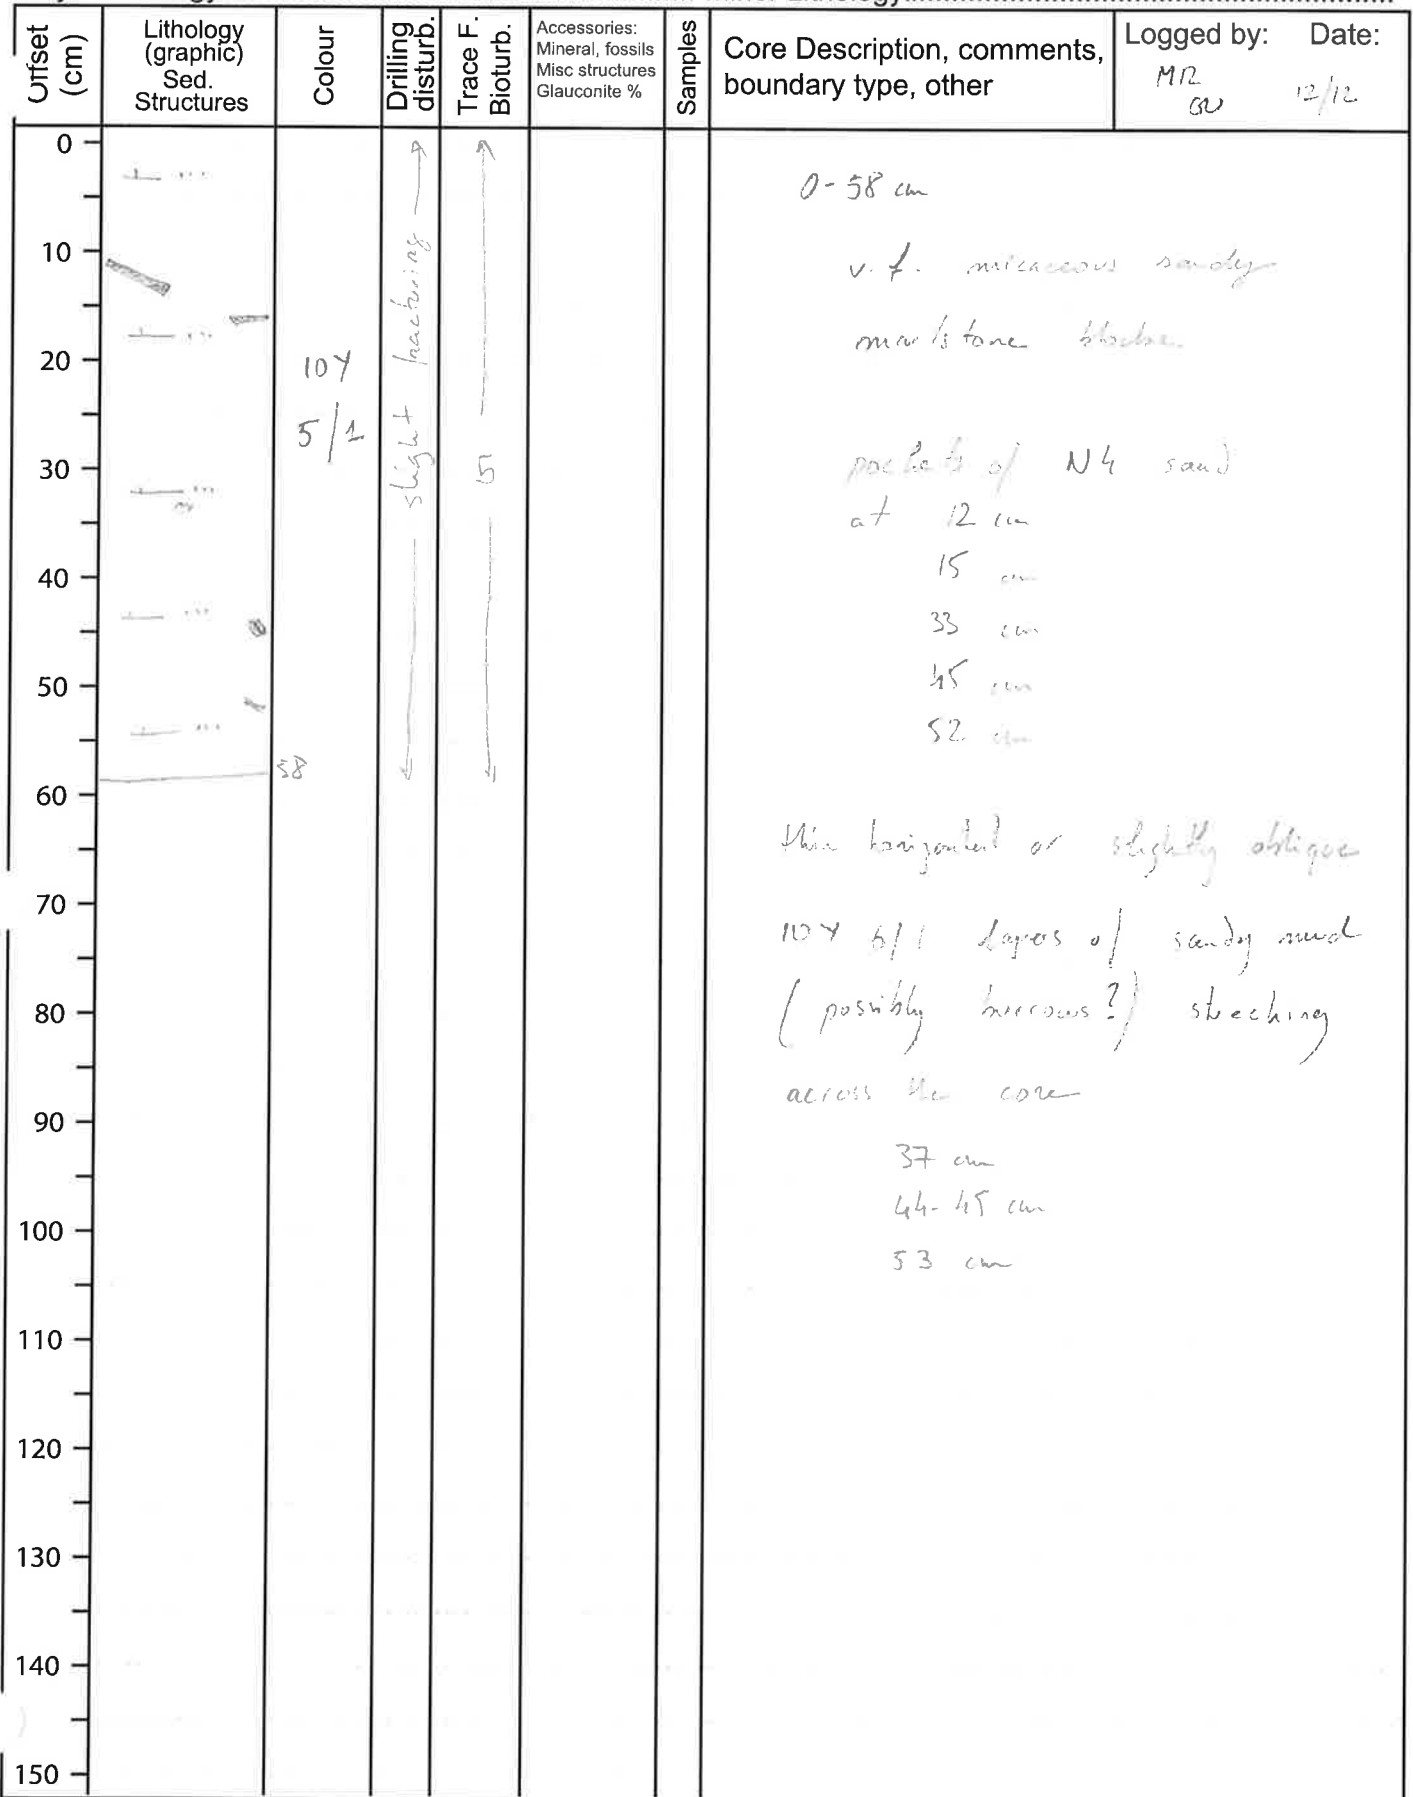 Offset (cm)
Lithology (graphic) Sed. Structures
Colour
Drilling disturb.
Trace F. Bioturb.
Accessories: Mineral, fossils Misc structures Glauconite %
Samples
Core Description, comments, boundary type, other
Logged by: Date:
MR
GU 12/12
0
10
20
30
40
50
60
70
80
90
100
110
120
130
140
150
58
10Y
5/1
slight fracturing
5
0-58 cm
v.f. micaceous sandy
marlstone
pockets of N4 sand
at 12 cm
15 cm
33 cm
45 cm
52 cm
thin horizontal or slightly oblique
10Y 6/1 layers of sandy mud
(possibly burrows?) streching
across the core
37 cm
44-45 cm
53 cm